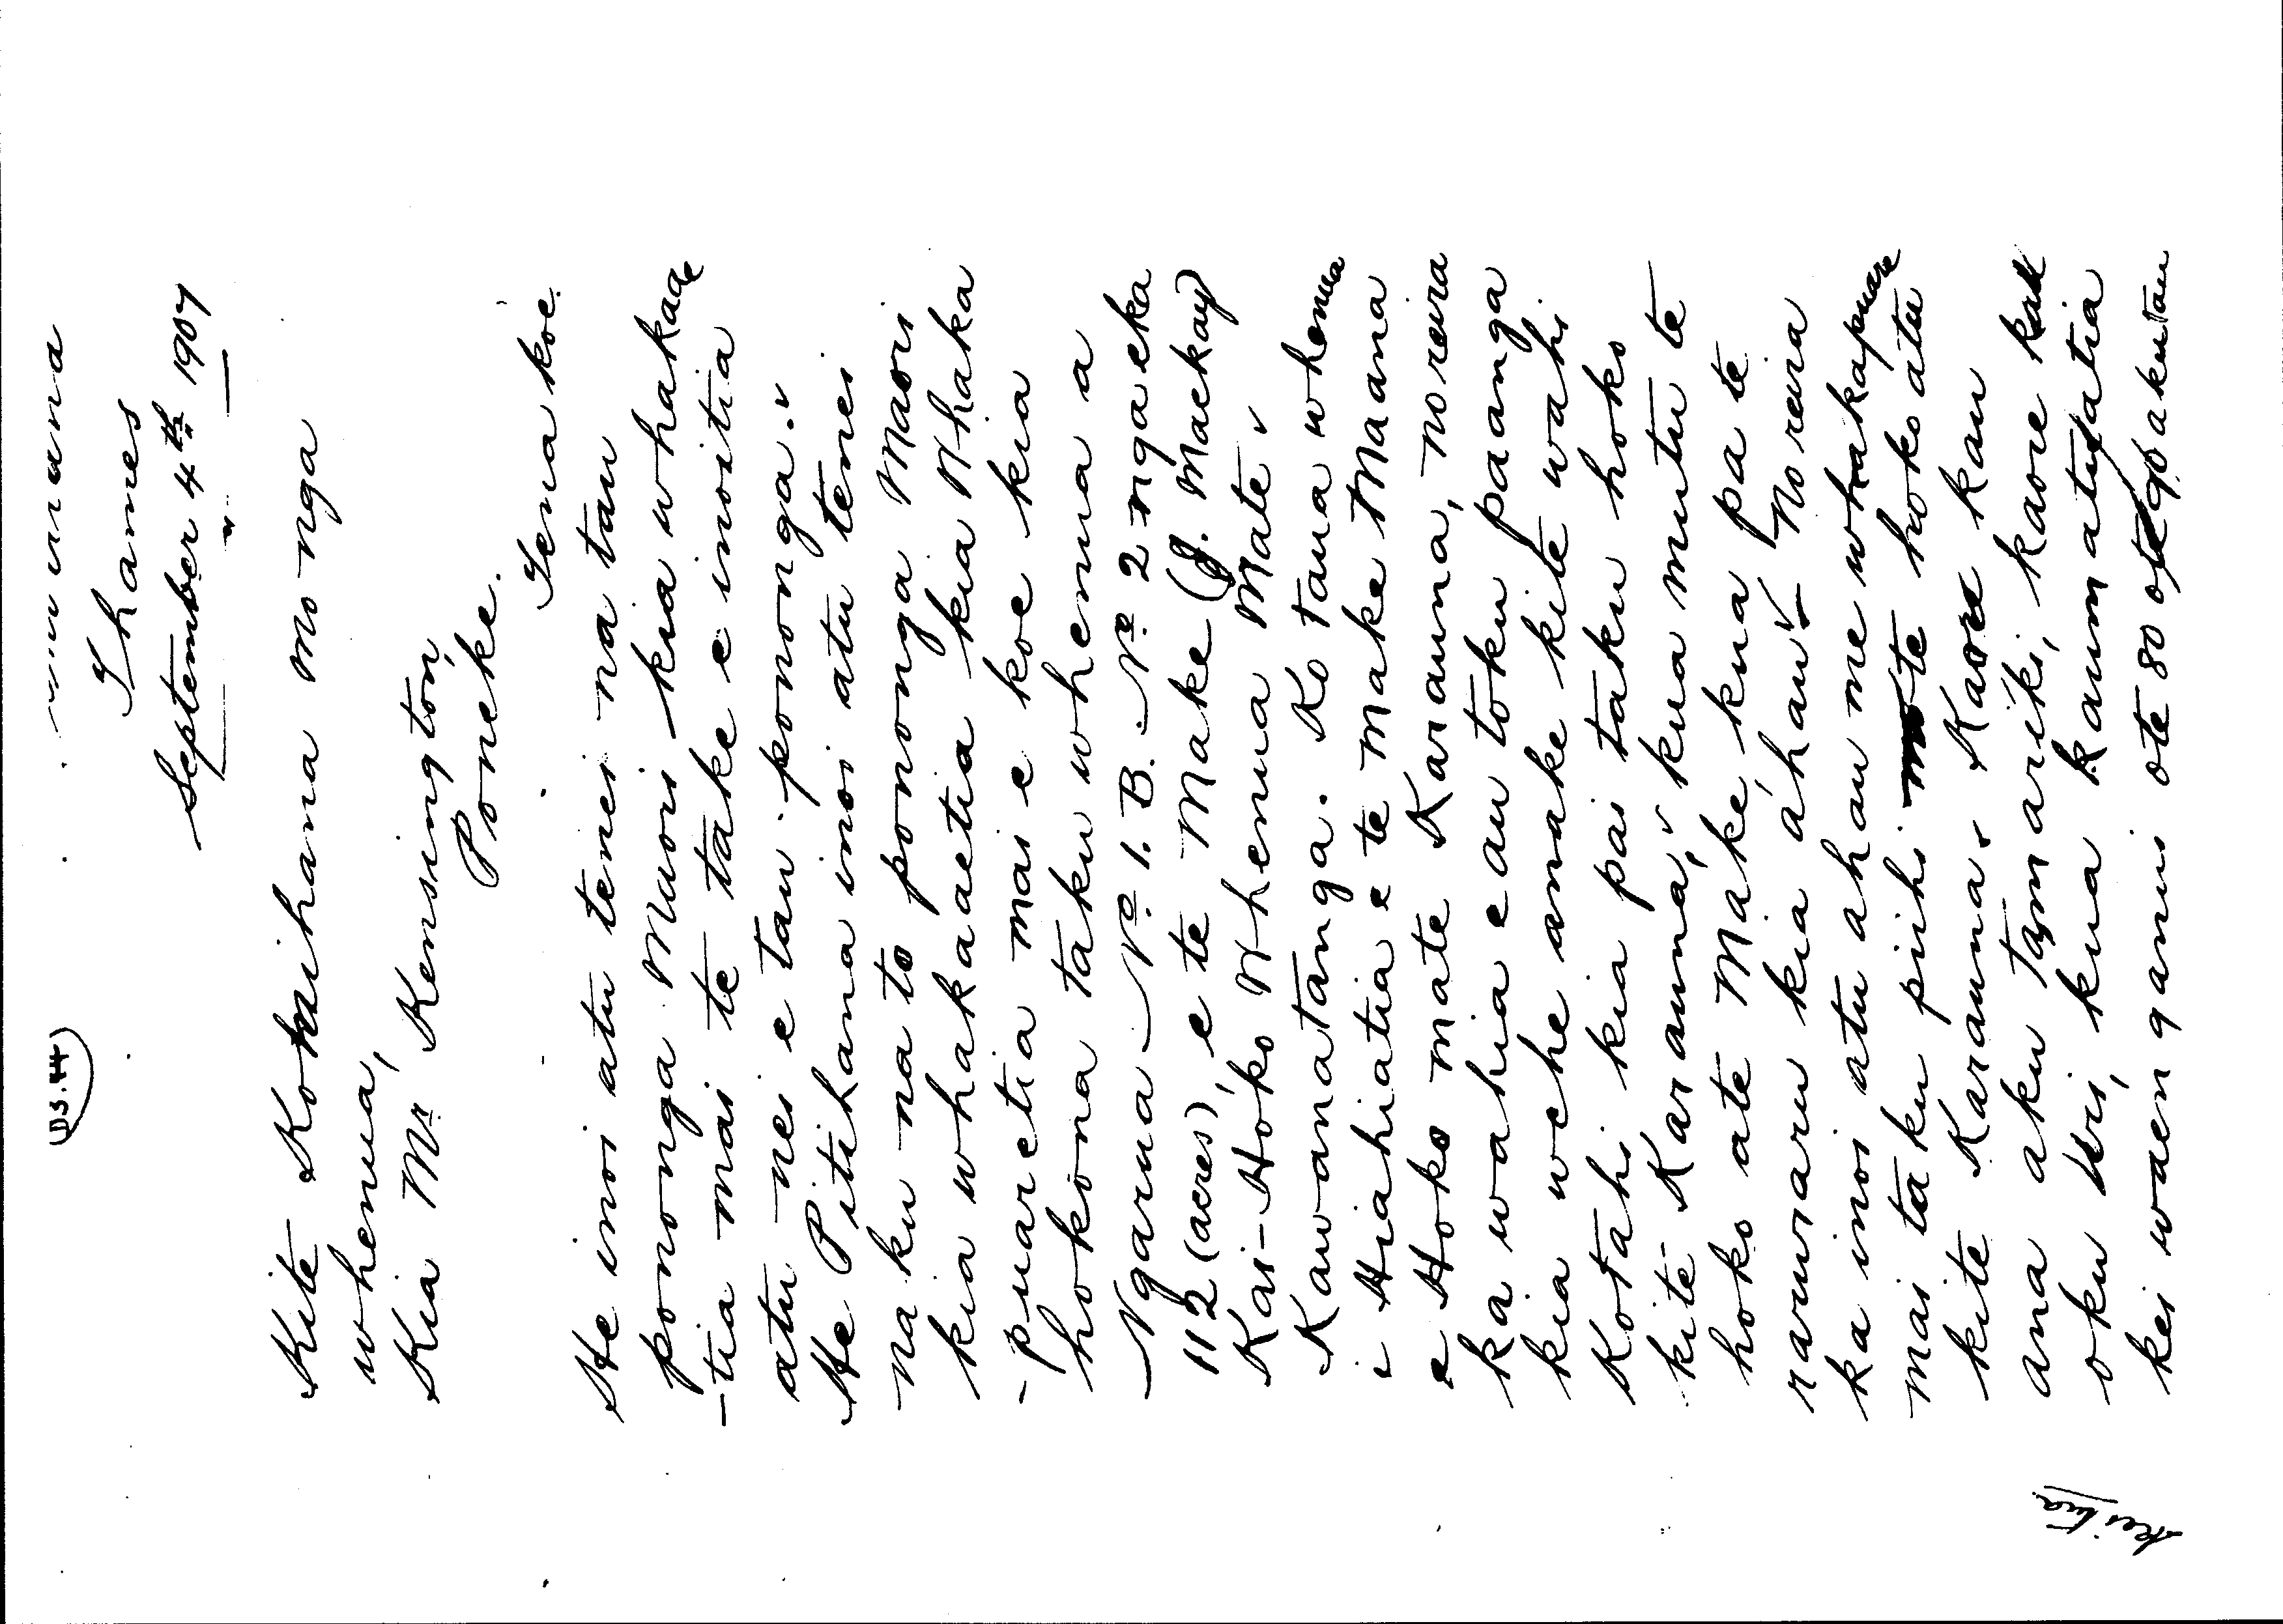 (D3.44)
Thames
September 4th 1907
Kite Komihana mo nga
whenua,
Kia Mr Kensington,
Poneke.
Tena koe.
He inoi atu tenei na tau
pononga Maori kia whakaae
-tia mai te take e inoitia
atu nei e tau ponong̃a.
He Pitihana inoi atu tenei
na ku na to ponong̃a Maori
kia whakaaetia kia Whaka
-puaretia mai e koe kia
hokona taku whenua a
Ngarua No. 1. B. No. 2 nga eka
112 (acres), e te Make (J. Mackay)
Kai-Hoko Whenua Mate
Kawanatanga. Ko taua whenua
i Hiahiatia e te Make Maana
e Hoko mate Karauna, no reira
ka wahia e au toku paanga
kia wehe anake kite wahi
Kotahi kia pai taku hoko
kite Karauna, kua mutu te
hoko ate Make kua pa te
raruraru kia ahau. No reira
ka inoi atu ahau me whakapuare
mai taku piihi mo te hoko atu
kite Karauna. Kaore kau
ana aku Tamariki, kaore kau
oku Uri, kua kaumatuatia
kei waenganui ote 80 ote 90 aku tau